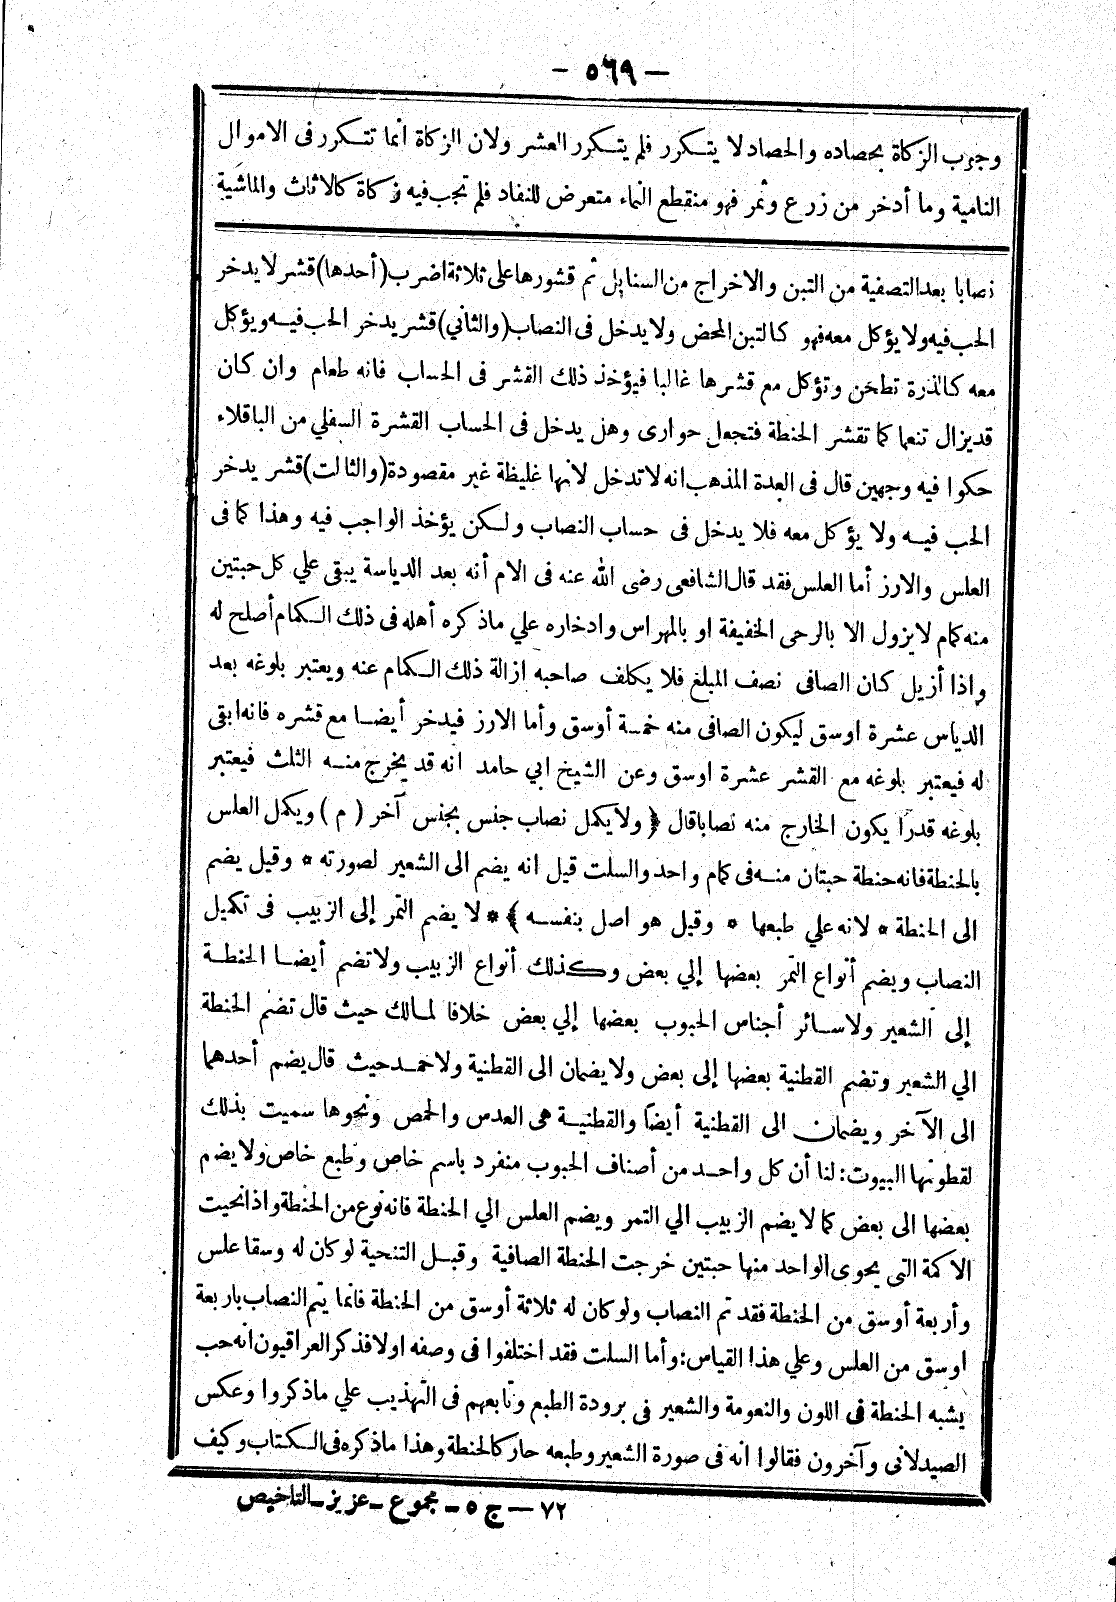 — ٥٦٩ —
وجوب الزكاة بحصاده والحصاد لا يتكرر فلم يتكرر العشر ولان الزكاة أنما تتكرر فى الاموال
النامية وما أدخر من زرع وثمر فهو منقطع النماء متعرض للنفاد فلم تجب فيه زكاة كالاثاث والماشية
نصابا بعد التصفية من التبن والاخراج من السنابل ثم قشورها على ثلاثة اضرب (أحدها) قشر لا يدخر
الحب فيه ولا يؤكل معه فهو كالتبن المحض ولا يدخل فى النصاب (والثاني) قشر يدخر الحب فيه ويؤكل
معه كالذرة تطحن وتؤكل مع قشرها غالبا فيؤخذ ذلك القشر فى الحساب فانه طعام وان كان
قد يزال تنعما كما تقشر الحنطة فتجعل حوارى وهل يدخل فى الحساب القشرة السفلي من الباقلاء
حكوا فيه وجهين قال فى العدة المذهب انه لا تدخل لانها غليظة غير مقصودة (والثالث) قشر يدخر
الحب فيه ولا يؤكل معه فلا يدخل فى حساب النصاب ولكن يؤخذ الواجب فيه وهذا كما فى
العلس والارز أما العلس فقد قال الشافعى رضى الله عنه فى الام أنه بعد الدياسة يبقى علي كل حبتين
منه كمام لا يزول الا بالرحى الخفيفة او بالمهراس وادخاره علي ما ذكره أهله فى ذلك الكمام أصلح له
واذا أزيل كان الصافى نصف المبلغ فلا يكلف صاحبه ازالة ذلك الكمام عنه ويعتبر بلوغه بعد
الدياس عشرة اوسق ليكون الصافى منه خمسة أوسق وأما الارز فيدخر أيضا مع قشره فانه ابقى
له فيعتبر بلوغه مع القشر عشرة اوسق وعن الشيخ ابي حامد انه قد يخرج منه الثلث فيعتبر
بلوغه قدرًا يكون الخارج منه نصابا قال ﴿ ولا يكمل نصاب جنس بجنس آخر ( م ) ويكمل العلس
بالحنطة فانه حنطة حبتان منه فى كمام واحد والسلت قيل انه يضم الى الشعير لصورته * وقيل يضم
الى الحنطة * لانه علي طبعها * وقيل هو اصل بنفسه ﴾ * لا يضم التمر إلى الزبيب فى تكميل
النصاب ويضم أنواع التمر بعضها إلي بعض وكذلك أنواع الزبيب ولا تضم أيضا الحنطة
إلى الشعير ولا سائر أجناس الحبوب بعضها إلي بعض خلافا لمالك حيث قال تضم الحنطة
الي الشعير وتضم القطنية بعضها إلى بعض ولا يضمان الى القطنية ولاحمد حيث قال يضم أحدهما
الى الآخر ويضمان الى القطنية أيضًا والقطنية هى العدس والحمص ونحوها سميت بذلك
لقطونها البيوت: لنا أن كل واحد من أصناف الحبوب منفرد باسم خاص وطبع خاص ولا يضم
بعضها الى بعض كما لا يضم الزبيب الي التمر ويضم العلس الي الحنطة فانه نوع من الحنطة واذا نحيت
الاكمة التى يحوى الواحد منها حبتين خرجت الحنطة الصافية وقبل التنحية لو كان له وسقا علس
وأربعة أوسق من الحنطة فقد تم النصاب ولو كان له ثلاثة أوسق من الحنطة فانما يتم النصاب باربعة
اوسق من العلس وعلي هذا القياس: وأما السلت فقد اختلفوا فى وصفه اولا فذكر العراقيون انه حب
يشبه الحنطة فى اللون والنعومة والشعير فى برودة الطبع وتابعهم فى التهذيب علي ما ذكروا وعكس
الصيدلانى وآخرون فقالوا انه فى صورة الشعير وطبعه حار كالحنطة وهذا ما ذكره فى الكتاب وكيف
٧٢ — ج ٥ — مجموع — عزيز — التلخيص